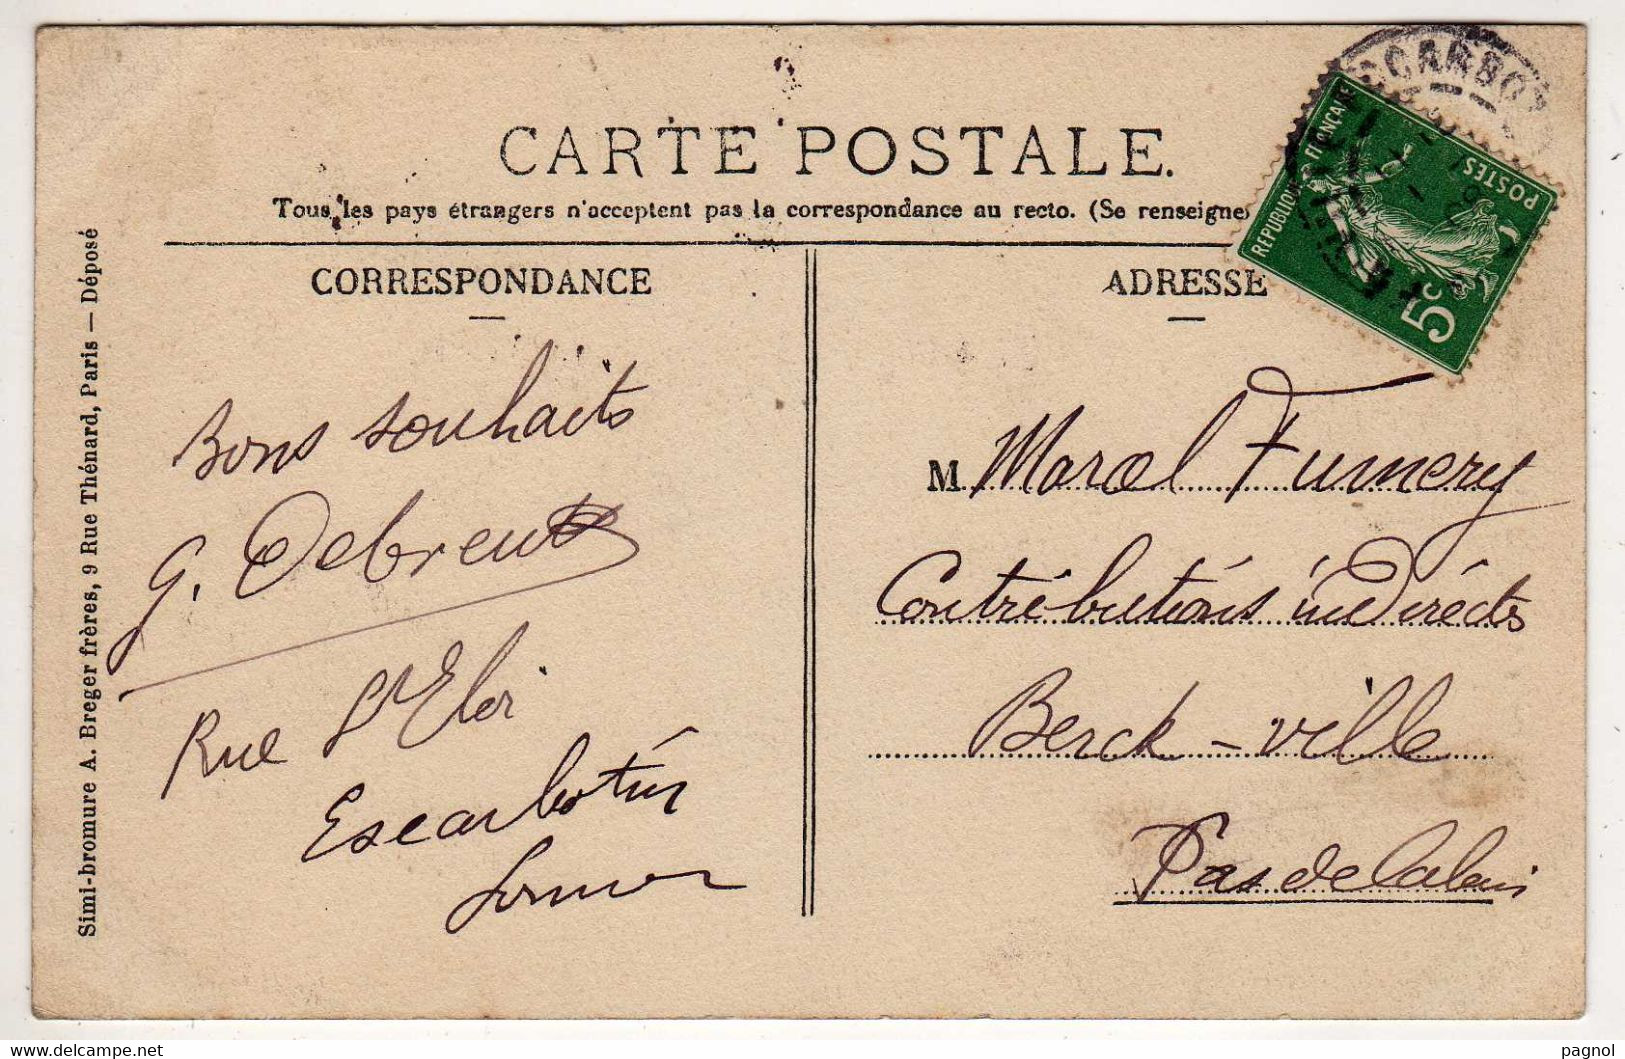 CARTE POSTALE.
Tous les pays étrangers n'acceptent pas la correspondance au recto. (Se renseigne
CORRESPONDANCE
Bons souhaits
G. Debreu
Rue St Eloi
Escarbotin
Somme
ADRESSE
M Marcel Fumery
Contributions indirectes
Berck-ville
Pas de Calais
Simi-bromure A. Breger frères, 9 Rue Thénard, Paris — Déposé
REPUBLIQUE FRANÇAISE
POSTES
5c
ESCARBOT
delcampe.net
pagnol